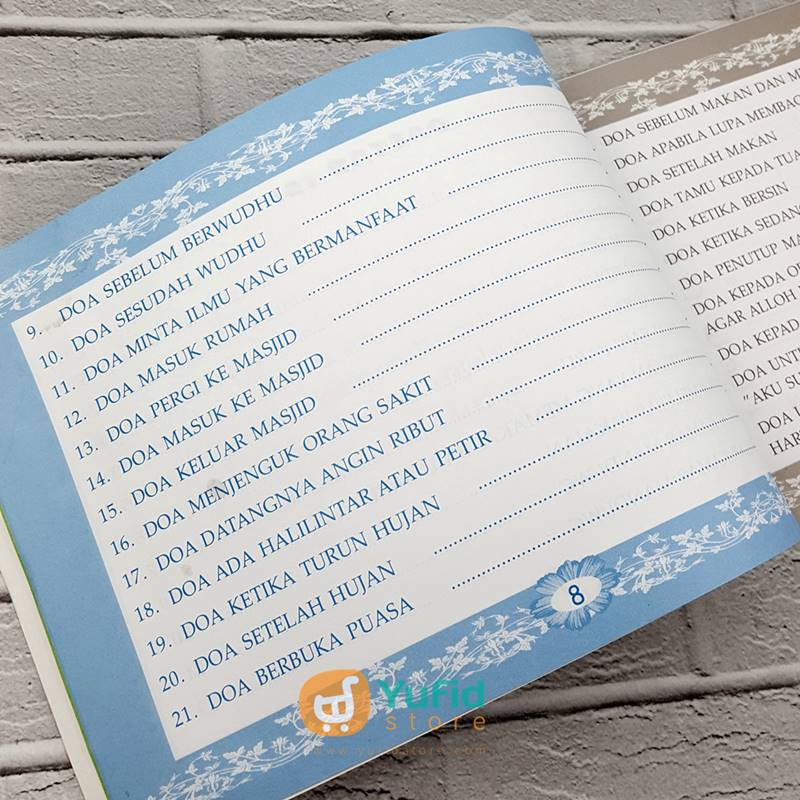 9. DOA SEBELUM BERWUDHU
10. DOA SESUDAH WUDHU
11. DOA MINTA ILMU YANG BERMANFAAT
12. DOA MASUK RUMAH
13. DOA PERGI KE MASJID
14. DOA MASUK KE MASJID
15. DOA KELUAR MASJID
16. DOA MENJENGUK ORANG SAKIT
17. DOA DATANGNYA ANGIN RIBUT
18. DOA ADA HALILINTAR ATAU PETIR
19. DOA KETIKA TURUN HUJAN
20. DOA SETELAH HUJAN
21. DOA BERBUKA PUASA
8
DOA SEBELUM MAKAN DAN
DOA APABILA LUPA
DOA SETELAH MAKAN
DOA TAMU KEPADA
DOA KETIKA BERSIN
DOA KETIKA
DOA PENUTUP
DOA KEPADA
AGAR ALLOH
DOA
DOA
"AKU
DOA
Yufid
store
www.yufidstore.com